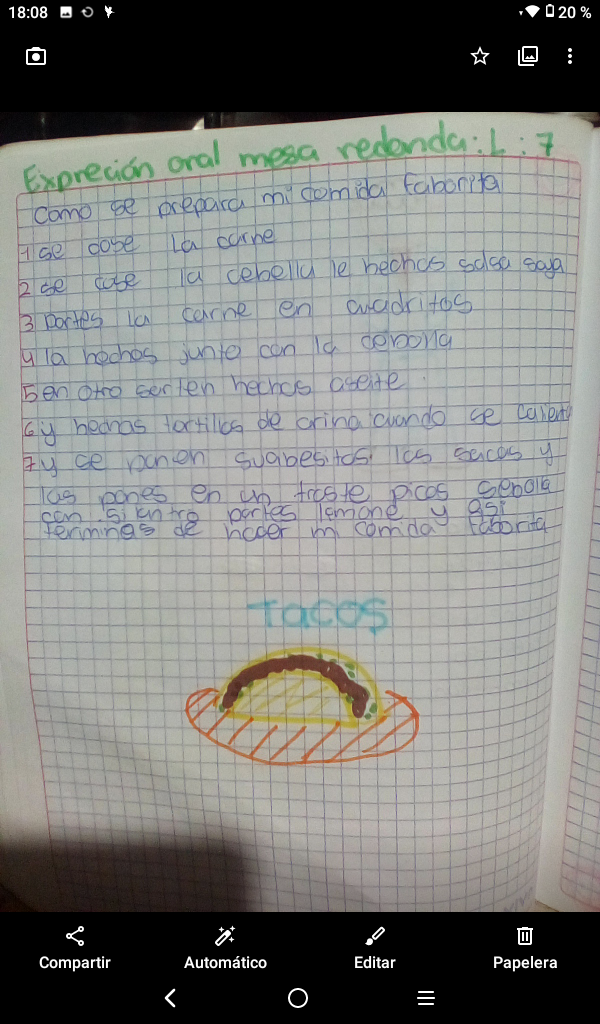 18:08
20 %
Expreción oral mesa redonda: L : 7
Como se prepara mi comida faborita
1 se cose la carne
2 se cose la cebolla le hechas salsa soya
3 Partes la carne en cuadritos
4 la hechas junto con la cebolla
5 en otro sarten hechas aseite.
6 y hechas tortillas de arina cuando se calient
7 y se ponen suabesitos las sacas y
las pones en un traste picas sebolla
con silantro partes lemone y asi
terminas de hacer mi comida faborita
Tacos
Compartir
Automático
Editar
Papelera